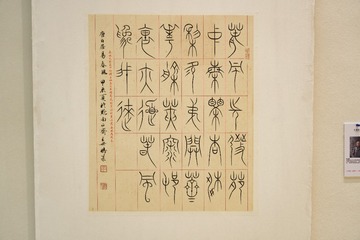 春風先發苑
中梅櫻杏桃
梨次弟開薺
華榆莢深邨
裏亦道春風
為我來
唐白居易春風 甲辰夏於